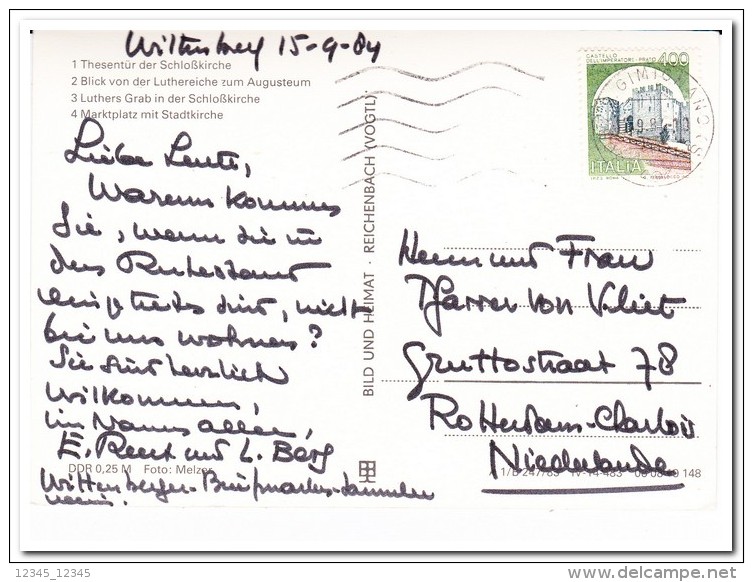 Wittenberg 15-9-84
1 Thesentür der Schloßkirche
2 Blick von der Luthereiche zum Augusteum
3 Luthers Grab in der Schloßkirche
4 Marktplatz mit Stadtkirche
Liebe Leute,
Warum kommen
Sie, wenn Sie in
den Ruhestand
eingetreten sind, nicht
bei uns wohnen?
Sie sind herzlich
Wilkommen,
im Namen aller,
E. Recht und L. Berg
Wittenberger-Briefmarken-Sammler
verein.
DDR 0,25 M Foto: Melzer
BILD UND HEIMAT · REICHENBACH (VOGTL)
CASTELLO
DELL'IMPERATORE - PRATO
400
ITALIA
GIMIGNANO
Herrn und Frau
Pfarrer von Vliet
Gruttostraat 78
Rotterdam-Charlois
Niederlande
148
12345_12345
www.delcampe.net